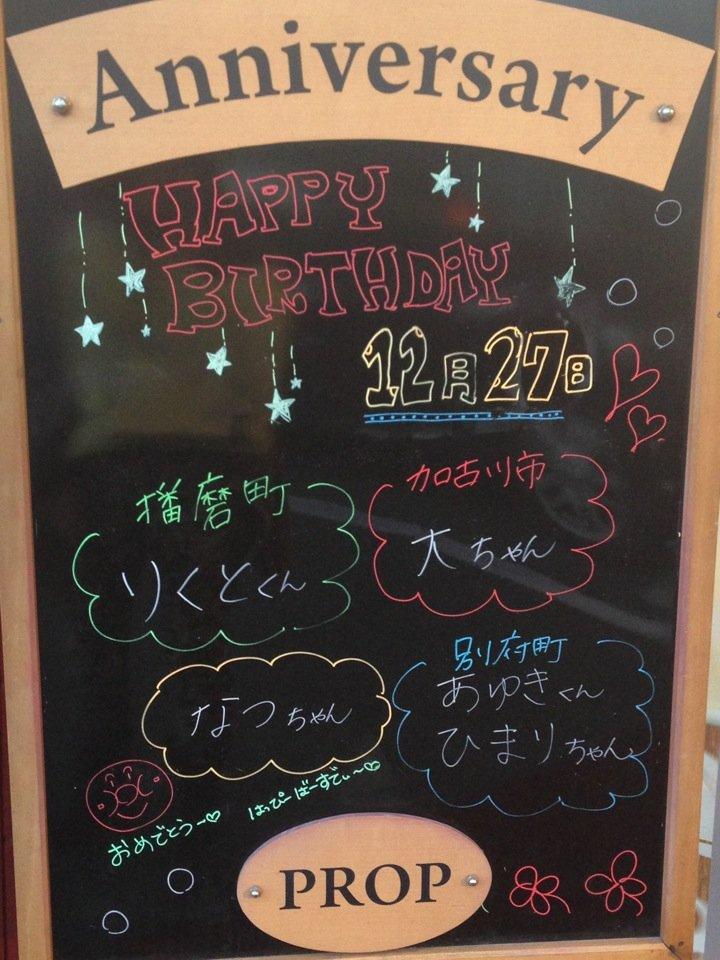 Anniversary
HAPPY
BIRTHDAY
12月27日
播磨町
りくとくん
加古川市
大ちゃん
なつちゃん
別府町
あゆきくん
ひまりちゃん
おめでとうー♡
はっぴーばーすでぃ〜♡
PROP